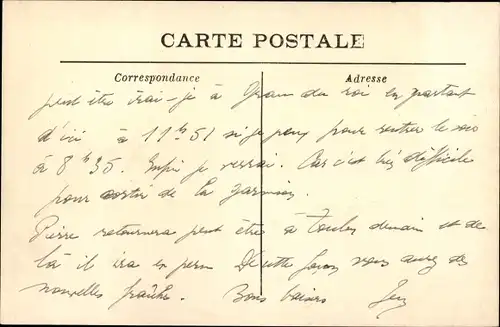 CARTE POSTALE
Correspondance
Adresse
peut être irai-je à Grau du roi en partant
d'ici à 11h51 si je peux pour rentrer le soir
à 8h35. Enfin je verrai. Car c'est très difficile
pour sortir de la
Pierre retournera peut être à Toulon demain et de
là il ira en perm De cette façon vous aurez des
nouvelles fraîche. Bons baisers